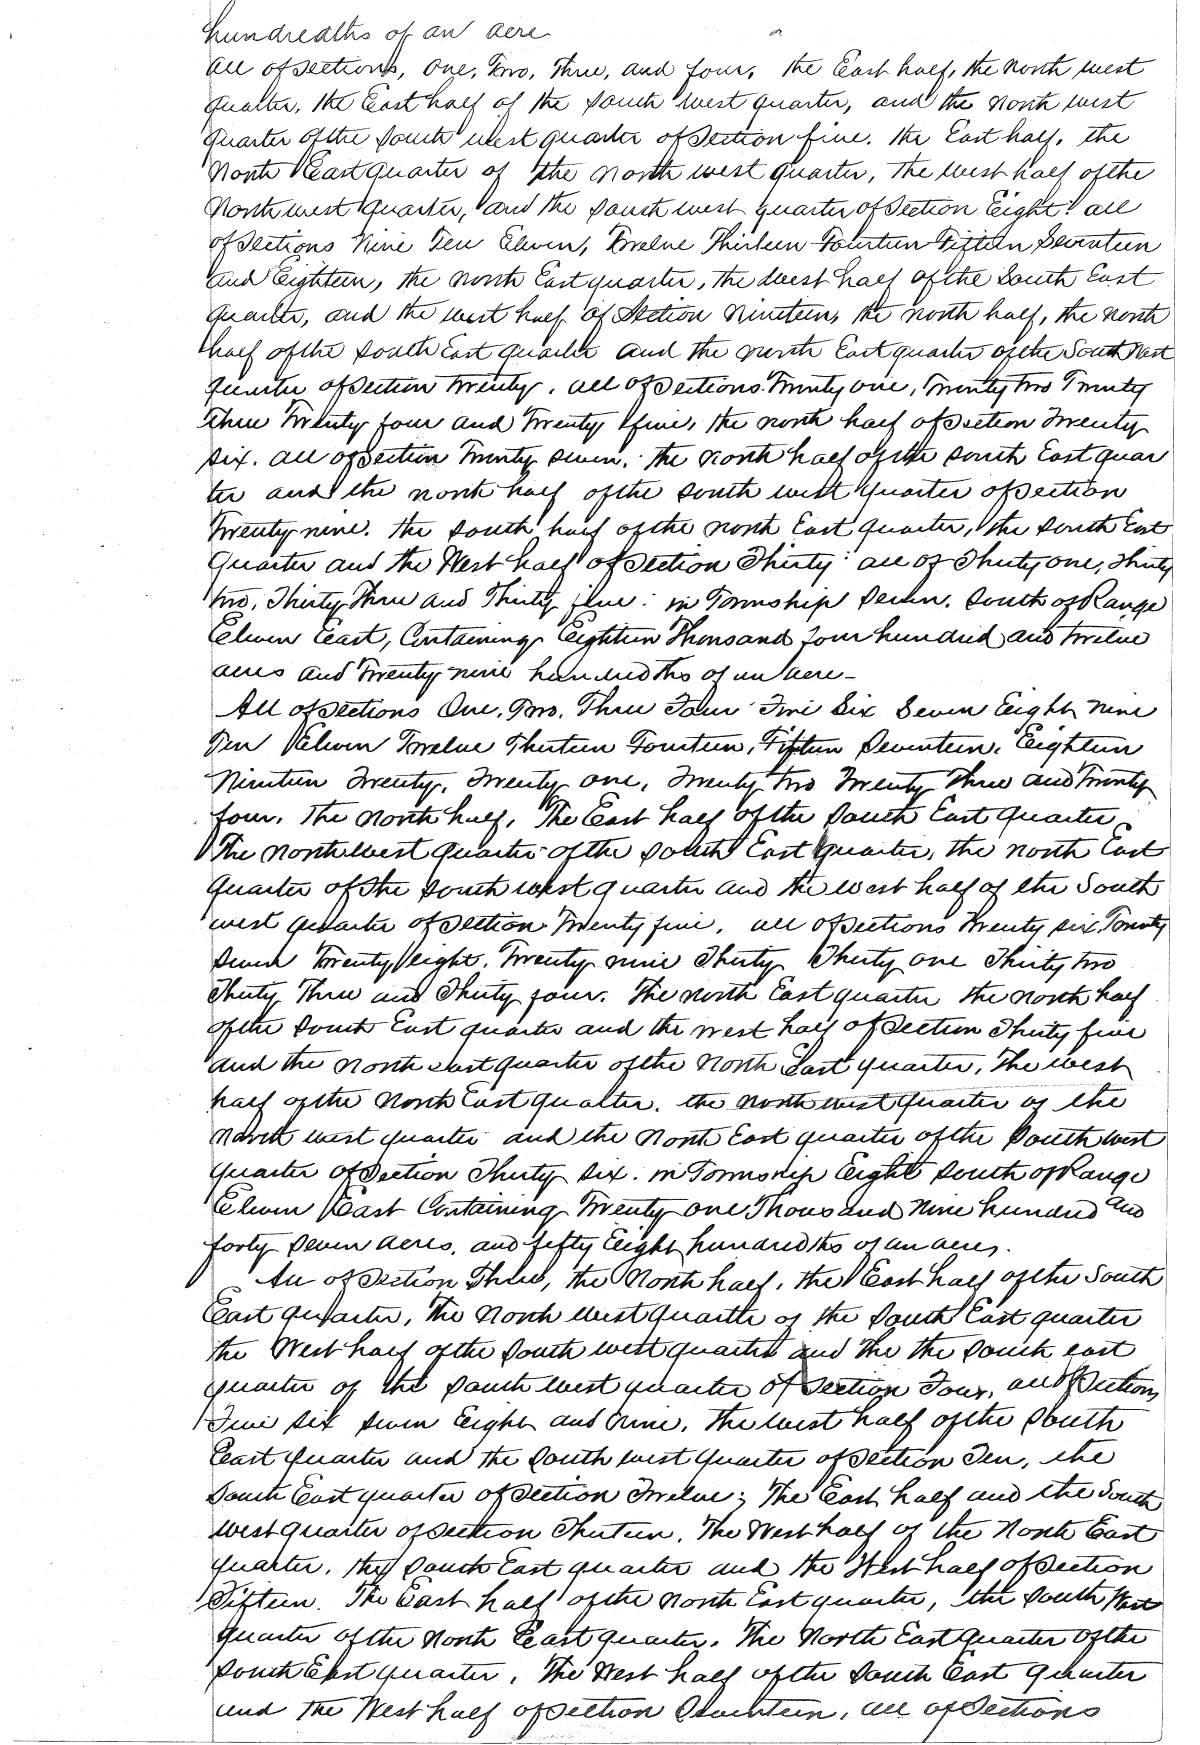 hundredths of an acre
all of sections, One, Two, Three, and four, the East half, the North west
quarter, the East half of the south west quarter, and the north west
quarter of the south west quarter of Section five. the East half, the
North East quarter of the north west quarter, the west half of the
North west quarter, and the south west quarter of Section Eight: all
of sections Nine Ten Eleven, Twelve Thirteen Fourteen Fifteen Seventeen
and Eighteen, the north East quarter, the west half of the South East
quarter, and the west half of Section Nineteen, the north half, the north
half of the south East quarter and the north East quarter of the South West
quarter of section Twenty. all of sections Twenty one, Twenty two Twenty
Three Twenty four and Twenty five, the north half of section Twenty
six. all of section Twenty seven. the north half of the south East quar
ter and the north half of the south west quarter of section
Twenty nine. the south half of the north East quarter, the south East
Quarter and the West half of Section Thirty: all of Thirty one, Thirty
two, Thirty Three and Thirty five: in Township Seven. South of Range
Eleven East, Containing Eighteen Thousand four hundred and twelve
acres and Twenty nine hundredths of an acre-
All of sections One, Two, Three Four Five Six Seven Eight nine
Ten Eleven Twelve Thirteen Fourteen, Fifteen Seventeen, Eighteen
Nineteen Twenty, Twenty one, Twenty two Twenty Three and Twenty
four, the north half, The East half of the South East quarter
The north west quarter of the south East quarter, the north East
quarter of the south west quarter and the west half of the South
west quarter of section Twenty five, all of sections Twenty six, Twenty
seven Twenty eight, Twenty nine Thirty Thirty one Thirty two
Thirty Three and Thirty four. The north East quarter the north half
of the south East quarter and the west half of Section Thirty five
and the North east quarter of the North East quarter, The west
half of the North East quarter. the north west quarter of the
north west quarter and the North East quarter of the South west
quarter of Section Thirty six. in Township Eight south of Range
Eleven East Containing Twenty one Thousand Nine hundred and
forty seven acres, and fifty Eight hundredths of an acres.
All of section Three, the North half, the East half of the South
East quarter, The north west quarter of the South East quarter
the West half of the South west quarter and the the south east
quarter of the south west quarter of Section Four, all of Sections
Five six seven Eight and nine, The west half of the South
East quarter and the South west quarter of Section Ten, the
South East quarter of Section Twelve; The East half and the South
west quarter of section Thirteen, The West half of the North East
quarter, the South East quarter and the West half of section
Fifteen. The East half of the North East quarter, the South West
quarter of the North East quarter. The North East quarter of the
south East quarter, The West half of the South East quarter
and the West half of Section Seventeen, all of Sections